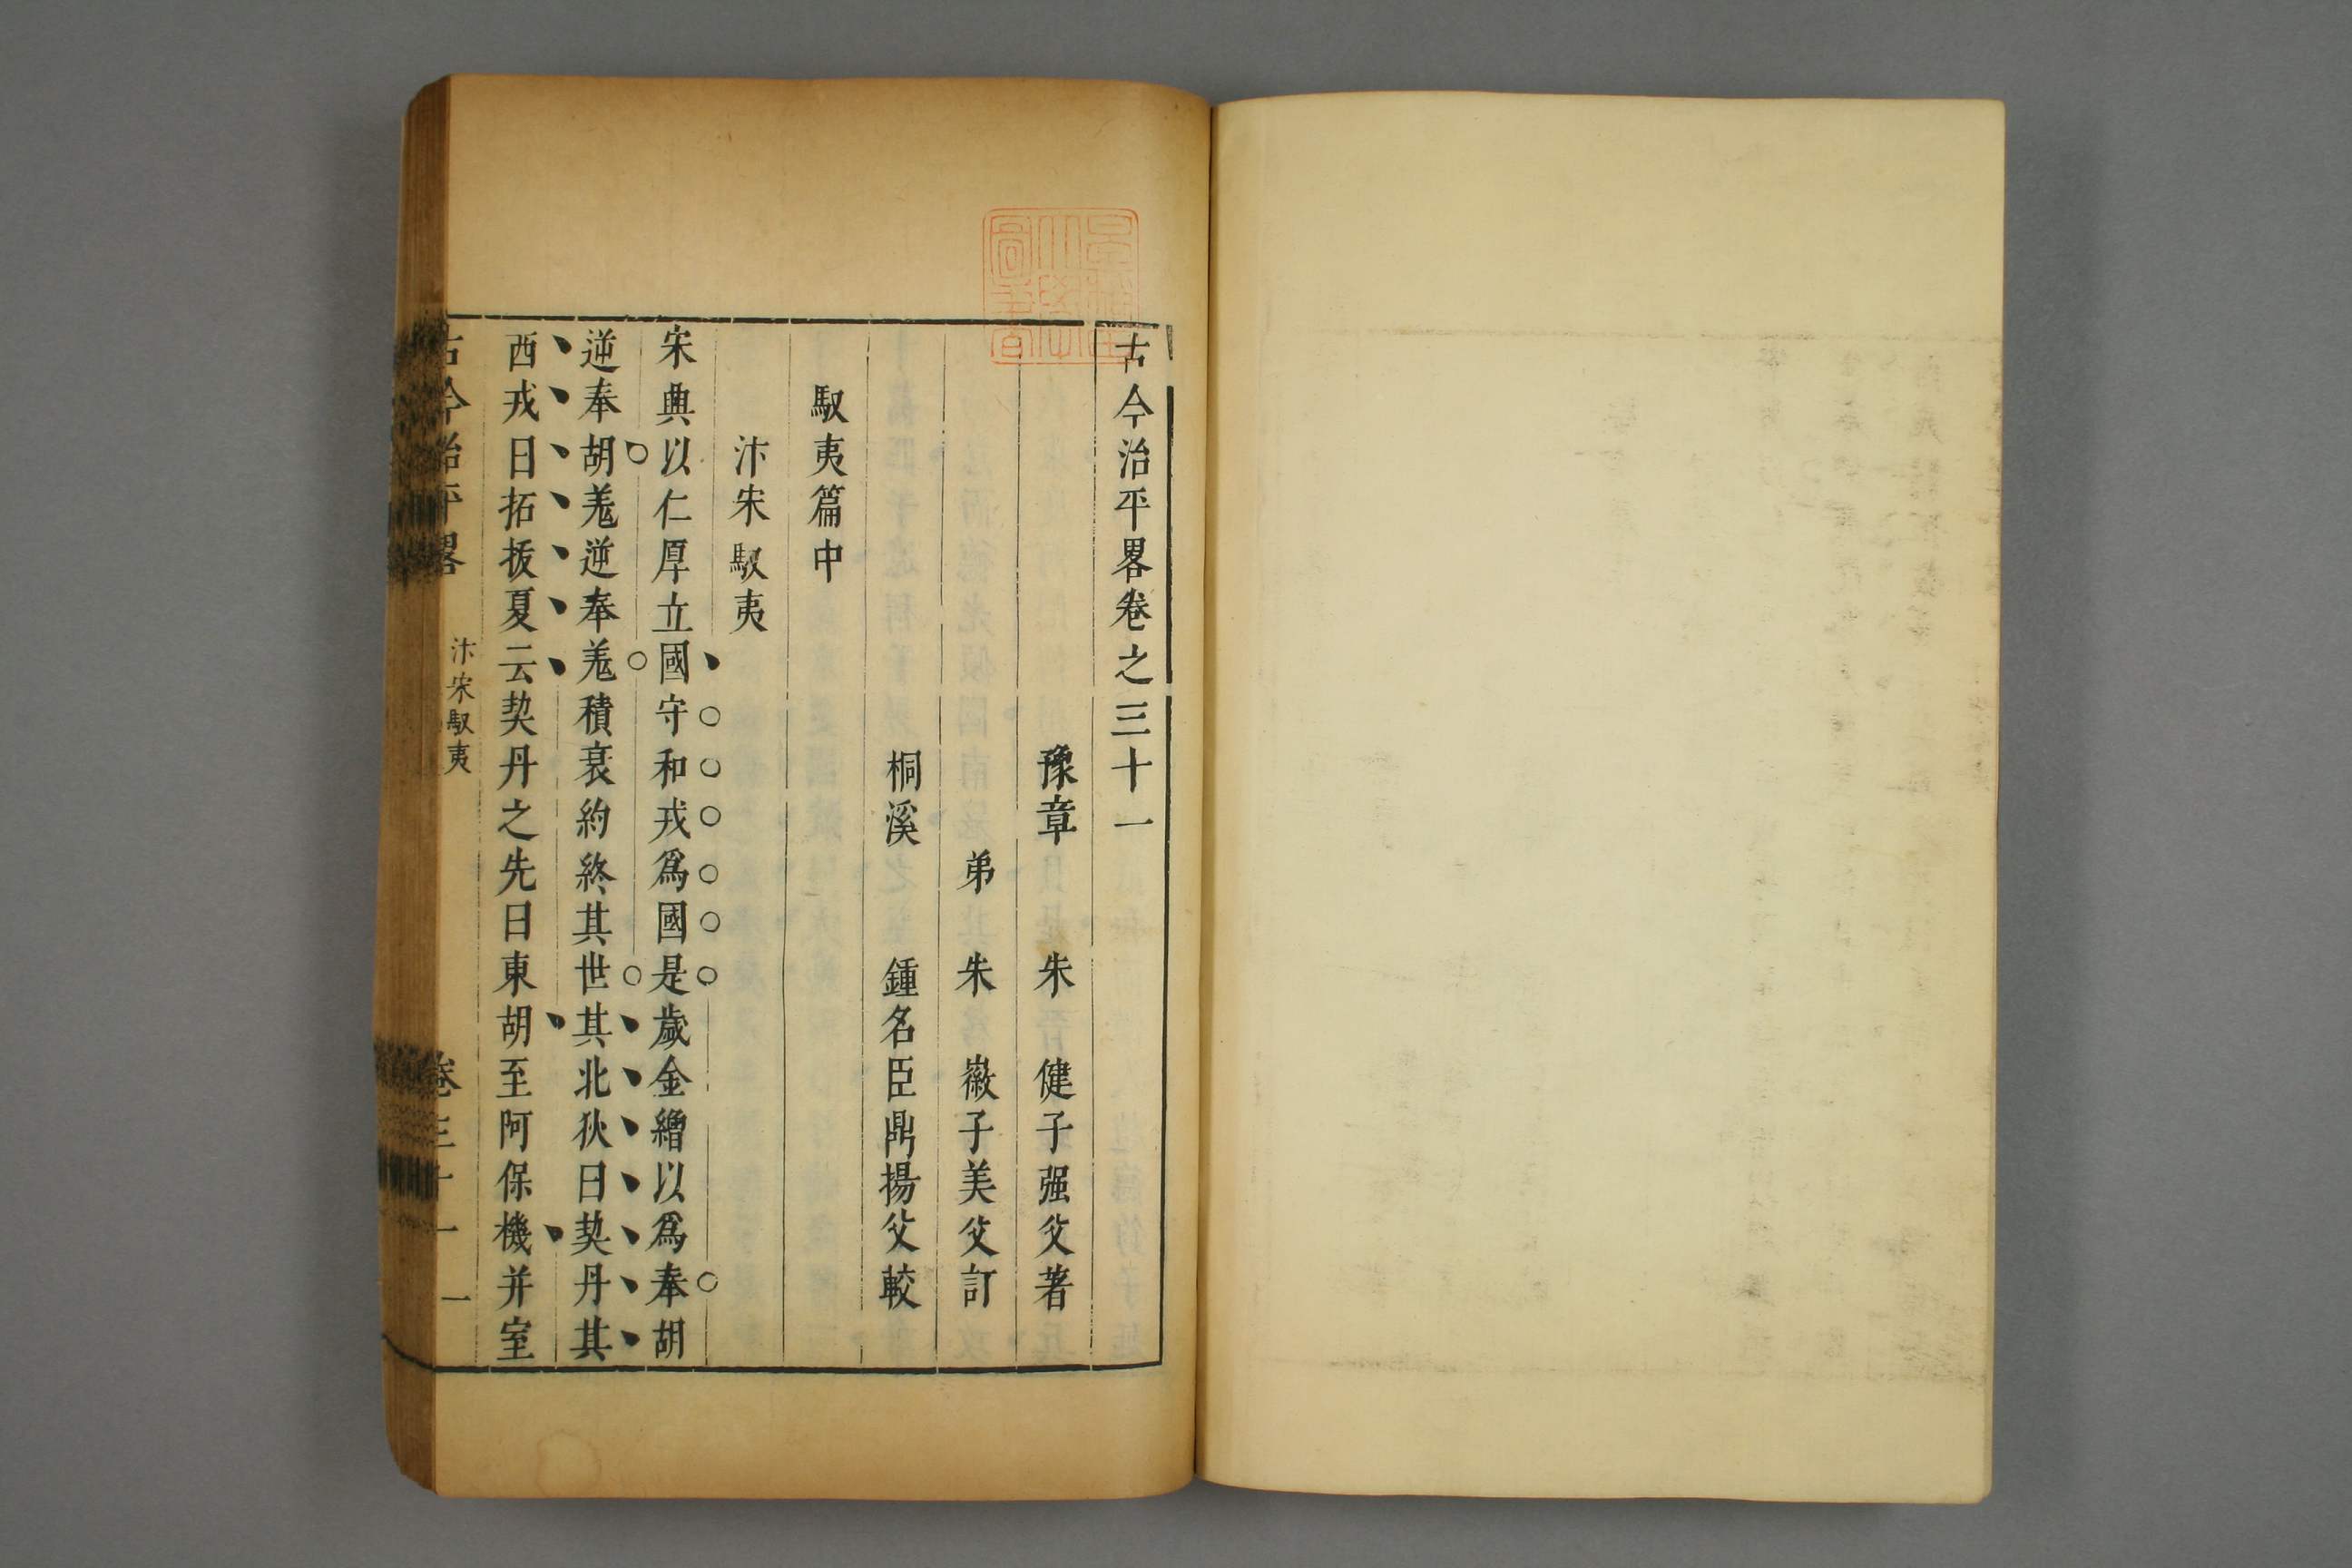 古今治平畧卷之三十一
豫章 朱 健子强父著
弟 朱 徽子美父訂
桐溪 鍾名臣鼎揚父較
馭夷篇中
汴宋馭夷
宋興以仁厚立國守和戎爲國是歲金繒以爲奉胡
逆奉胡羗逆奉羗積衰約終其世其北狄曰契丹其
西戎曰拓拔夏云契丹之先曰東胡至阿保機并室
古今治平畧 汴宋馭夷 卷三十一 一